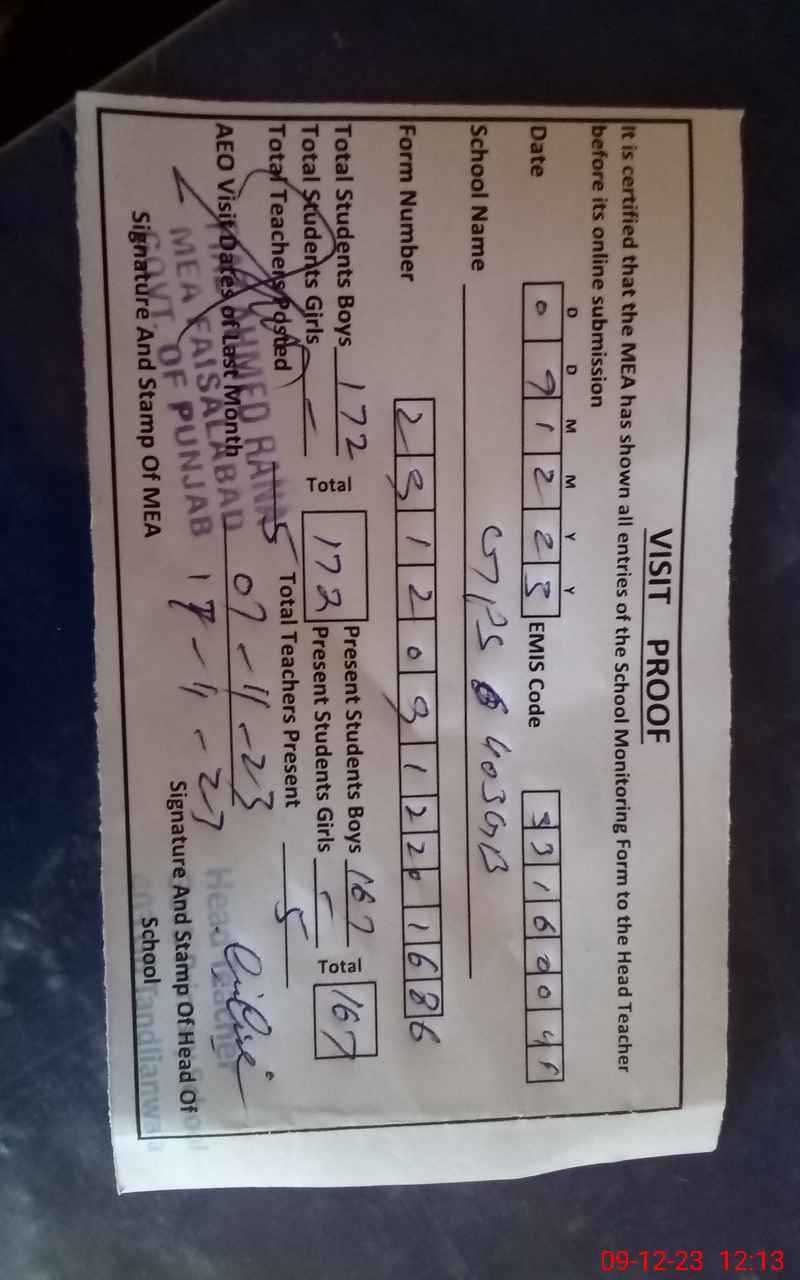 VISIT PROOF
It is certified that the MEA has shown all entries of the School Monitoring Form to the Head Teacher
before its online submission
D D M M Y Y
Date 0 9 1 2 2 3 EMIS Code 3 3 1 6 0 0
School Name GPS 403 GB
Form Number 2 3 1 2 0 9 1 2 2 0 1 6 8 6
Total Students Boys 172 Total 172 Present Students Boys 167 Total 167
Total Students Girls - Present Students Girls -
Total Teachers Posted 5 Total Teachers Present 5
AEO Visit Dates of Last Month 07-11-23
17-11-23
AHMED RANA
MEA FAISALABAD
GOVT. OF PUNJAB
Head Teacher
Tandlianwala
Signature And Stamp Of MEA
Signature And Stamp Of Head Of
School
09-12-23 12:13